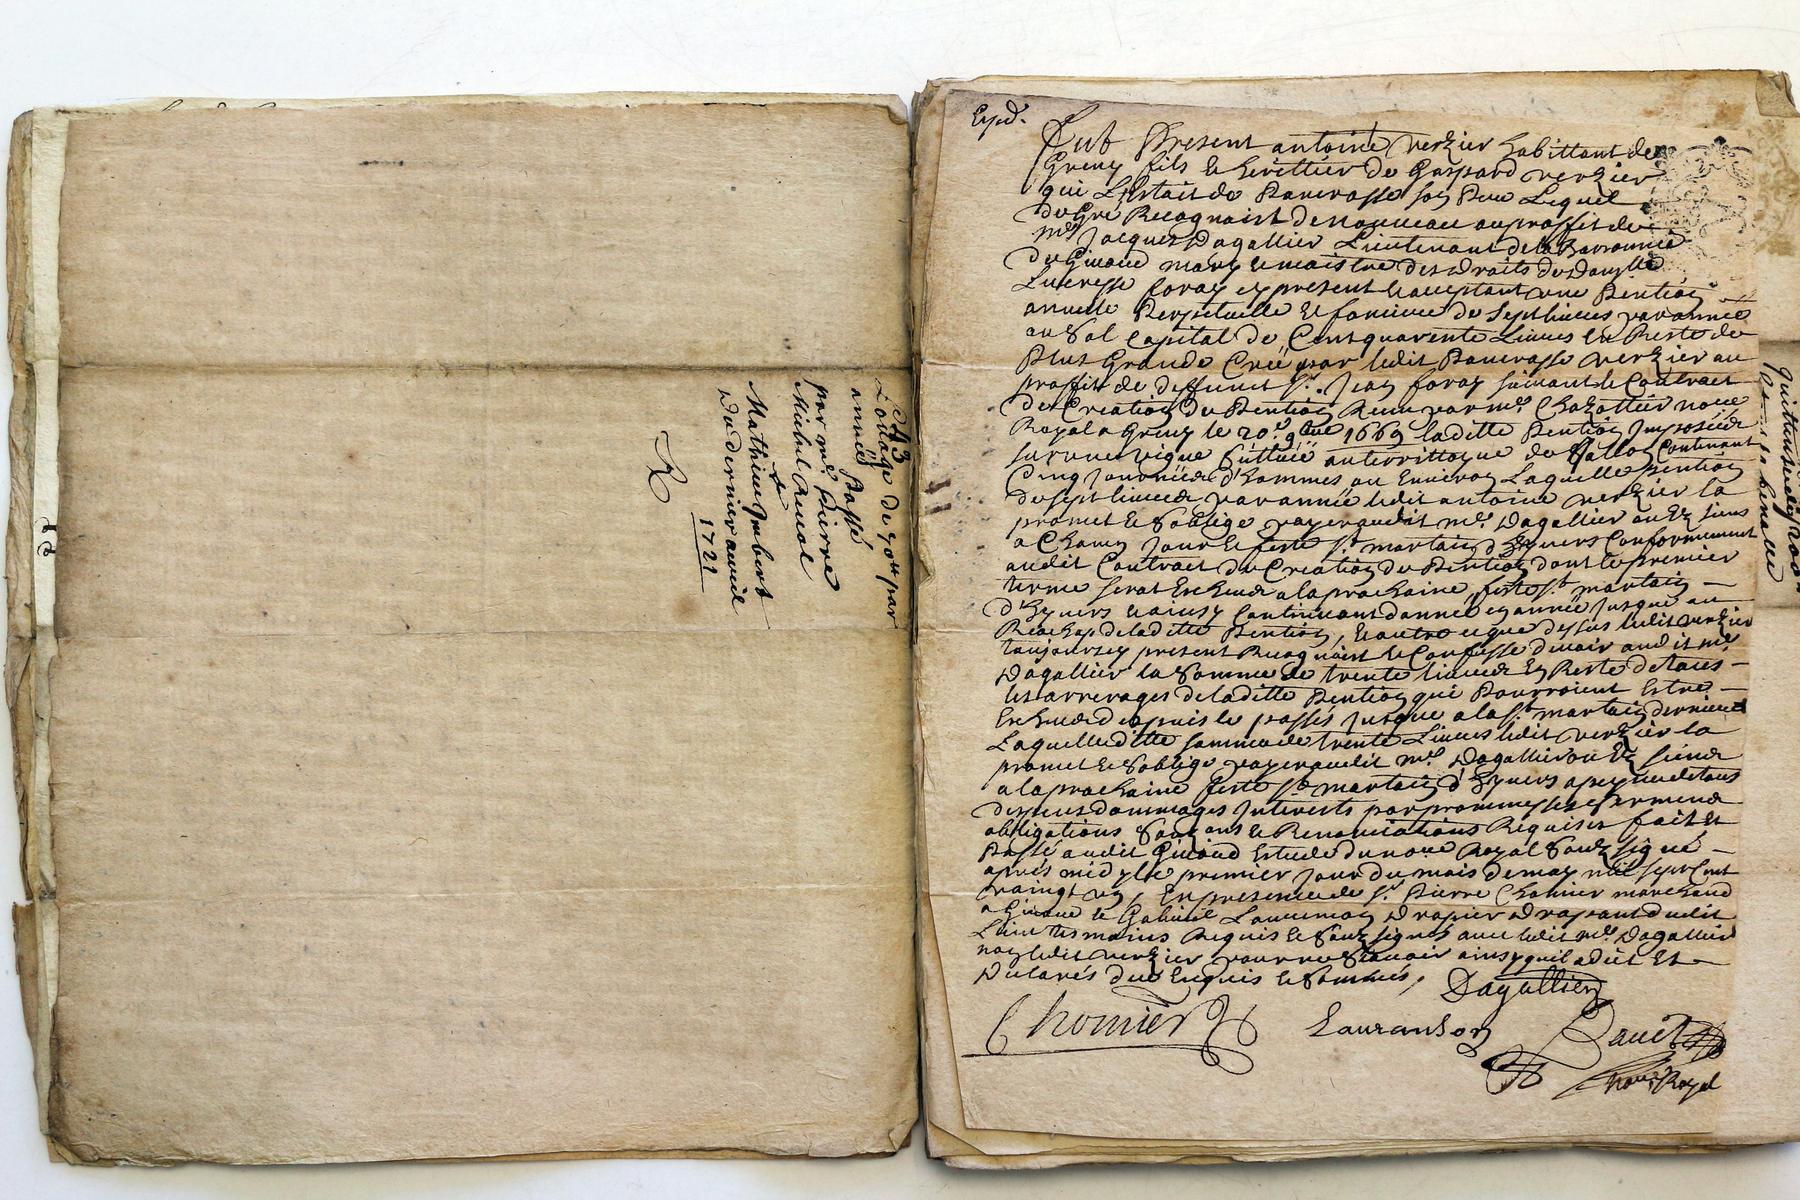 N° 43
Louage de 70ᵗᵗ par
année Passé
par mᵉ Pierre
Michel Renol
&
Mathieu Jubert
du dernier avril
1721
Expd.
Fut Present antoine verzier habittant de
fils & herittier de Gaspard verzier
qui L'Estait de Pancrasse son Pere Lequel
de Gré Recognaist de nouveau au proffit de
mᵉ Jacques Dagallier Lieutenant de la Baronnie
de Givord mary & maistre des droits de damˡˡᵉ
Lucresse foray cy present & acceptant une Pention
annuelle Perpetuelle & fonciere de Sept livres par année
au Sol Capital de Cent quarente Livres En Reste de
Plus Grande Creé par ledit Pancrasse verzier au
proffit de deffunct Sʳ. Jean foray suivant le Contract
de Creation de Pention Receu par mᵉ Chazottier noʳᵉ
Royal a Greny le 20ᵉ 9ᵇʳᵉ 1669 laditte Pention Imposeé
sur une vigne scittueé au territtoyre de Contenant
Cinq Journeés d'hommes ou Environ Laquelle Pention
de sept livres par année ledit antoine verzier la
promet & s'oblige payer audit mᵉ Dagallier ou Es siens
a Chacun Jour & feste Sᵗ martain d'hyvers Conformement
audit Contract de Creation de Pention dont le premier
terme serat Escheu a la prochaine feste Sᵗ martain
d'hyvers & ainsy Continuant d'annee en annee Jusque au
Reachap de laditte Pention, & outre ce que dessus ledit verzier
toujours cy present Recognaist & Confesse devoir audit mᵉ
Dagallier la Somme de trente livres En Reste de tous
les arrerages de laditte Pention qui Pourroient Estre
Escheus depuis le passés Jusque a la Sᵗ martain dernier
Laquelle ditte somme de trente Livres ledit verzier la
promet & s'oblige payer audit mᵉ Dagallier ou Es siens
a la prochaine feste Sᵗ martain d'hyvers a peyne de tous
despens dommages Interests par promesses serments
obligations & Renonciations Requises fait &
Passé audit Givord Estude du noʳᵉ Royal Soubzsigné
aprés midy le premier Jour du mois de may mil sept Cent
vaingt un, En presence de Sʳ. Pierre Chomier marchand
a Givord & Gabriel Laurenson drapier drapant dudit
Lieu tesmoins Requis & Soubzsignés avec ledit mᵉ Dagallier
non ledit verzier pour ne Scavoir ainsy quil a dict Et
Declarés de ce Enquis & Sommés,
Dagallier
Chomier
Lauranson
noʳᵉ Royal